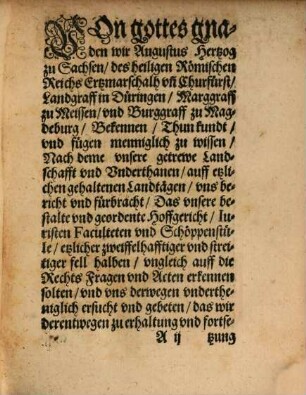 VOn gottes gna-
den wir Augustus Hertzog
zu Sachsen / des heiligen Römischen
Reichs Ertzmarschalh vñ Churfürst /
Landgraff in Düringen / Marggraff
zu Meissen / vnd Burggraff zu Mag-
deburg / Bekennen / Thun kundt /
vnd fügen menniglich zu wissen /
Nach deme vnsere getrewe Land-
schafft vnd Vnderthanen / auff etzli-
chen gehaltenen Landtägen / vns be-
richt vnd fürbracht / Das vnsere be-
stalte vnd geordente Hoffgericht / Iu-
risten Faculteten vnd Schöppenstü-
le / etzlicher zweiffelhafftiger vnd strei-
tiger fell halben / vngleich auff die
Rechts Fragen vnd Acten erkennen
solten / vnd vns derwegen vnderthe-
niglich ersucht vnd gebeten / das wir
derentwegen zu erhaltung vnd fortse-
A ij tzung